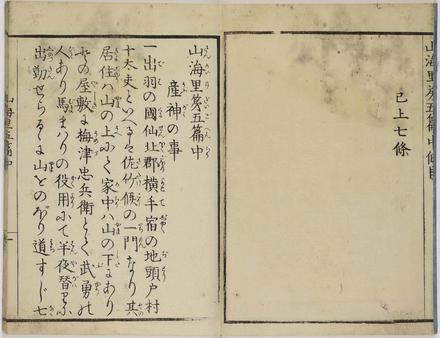 山海里第五篇中條目
已上七條
山海里第五篇中
産神の事
一出羽の國仙北郡横手宿の地頭戸村
十太夫といへるは佐竹侯の一門なり其
居住ハ山の上にて家中ハ山の下にあり
その屋敷に梅津忠兵衛とて武勇の
人あり馬まハりの役用にて半夜替りに
出勤せらるゝに山をのぼり道すじ七
山海里五篇中
一